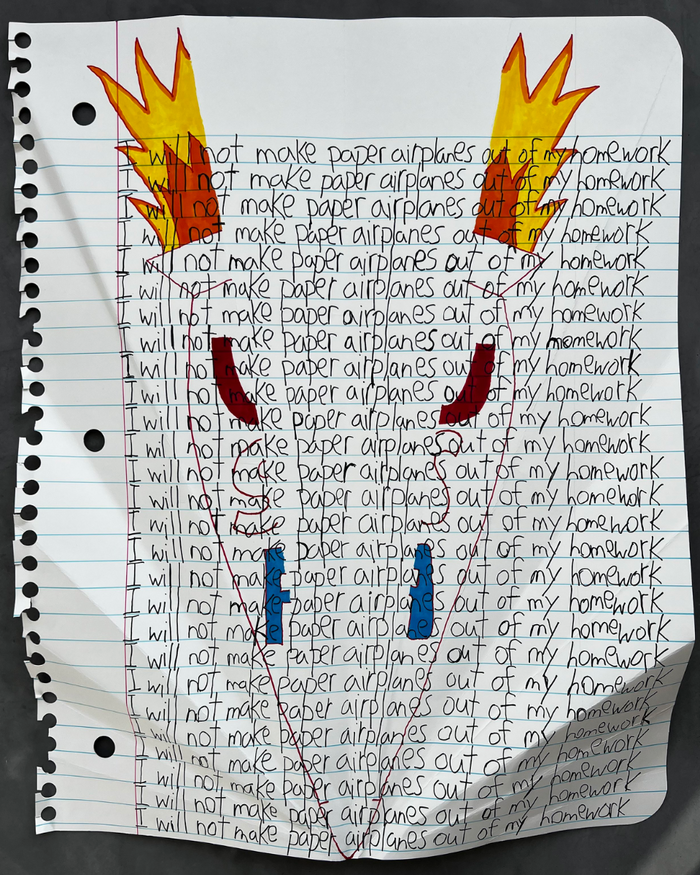 I will not make paper airplanes out of my homework
I will not make paper airplanes out of my homework
I will not make paper airplanes out of my homework
I will not make paper airplanes out of my homework
I will not make paper airplanes out of my homework
I will not make paper airplanes out of my homework
I will not make paper airplanes out of my homework
I will not make paper airplanes out of my homework
I will not make paper airplanes out of my homework
I will not make paper airplanes out of my homework
I will not make paper airplanes out of my homework
I will not make paper airplanes out of my homework
I will not make paper airplanes out of my homework
I will not make paper airplanes out of my homework
I will not make paper airplanes out of my homework
I will not make paper airplanes out of my homework
I will not make paper airplanes out of my homework
I will not make paper airplanes out of my homework
I will not make paper airplanes out of my homework
I will not make paper airplanes out of my homework
I will not make paper airplanes out of my homework
I will not make paper airplanes out of my homework
I will not make paper airplanes out of my homework
I will not make paper airplanes out of my homework
I will not make paper airplanes out of my homework
I will not make paper airplanes out of my homework
I will not make paper airplanes out of my homework